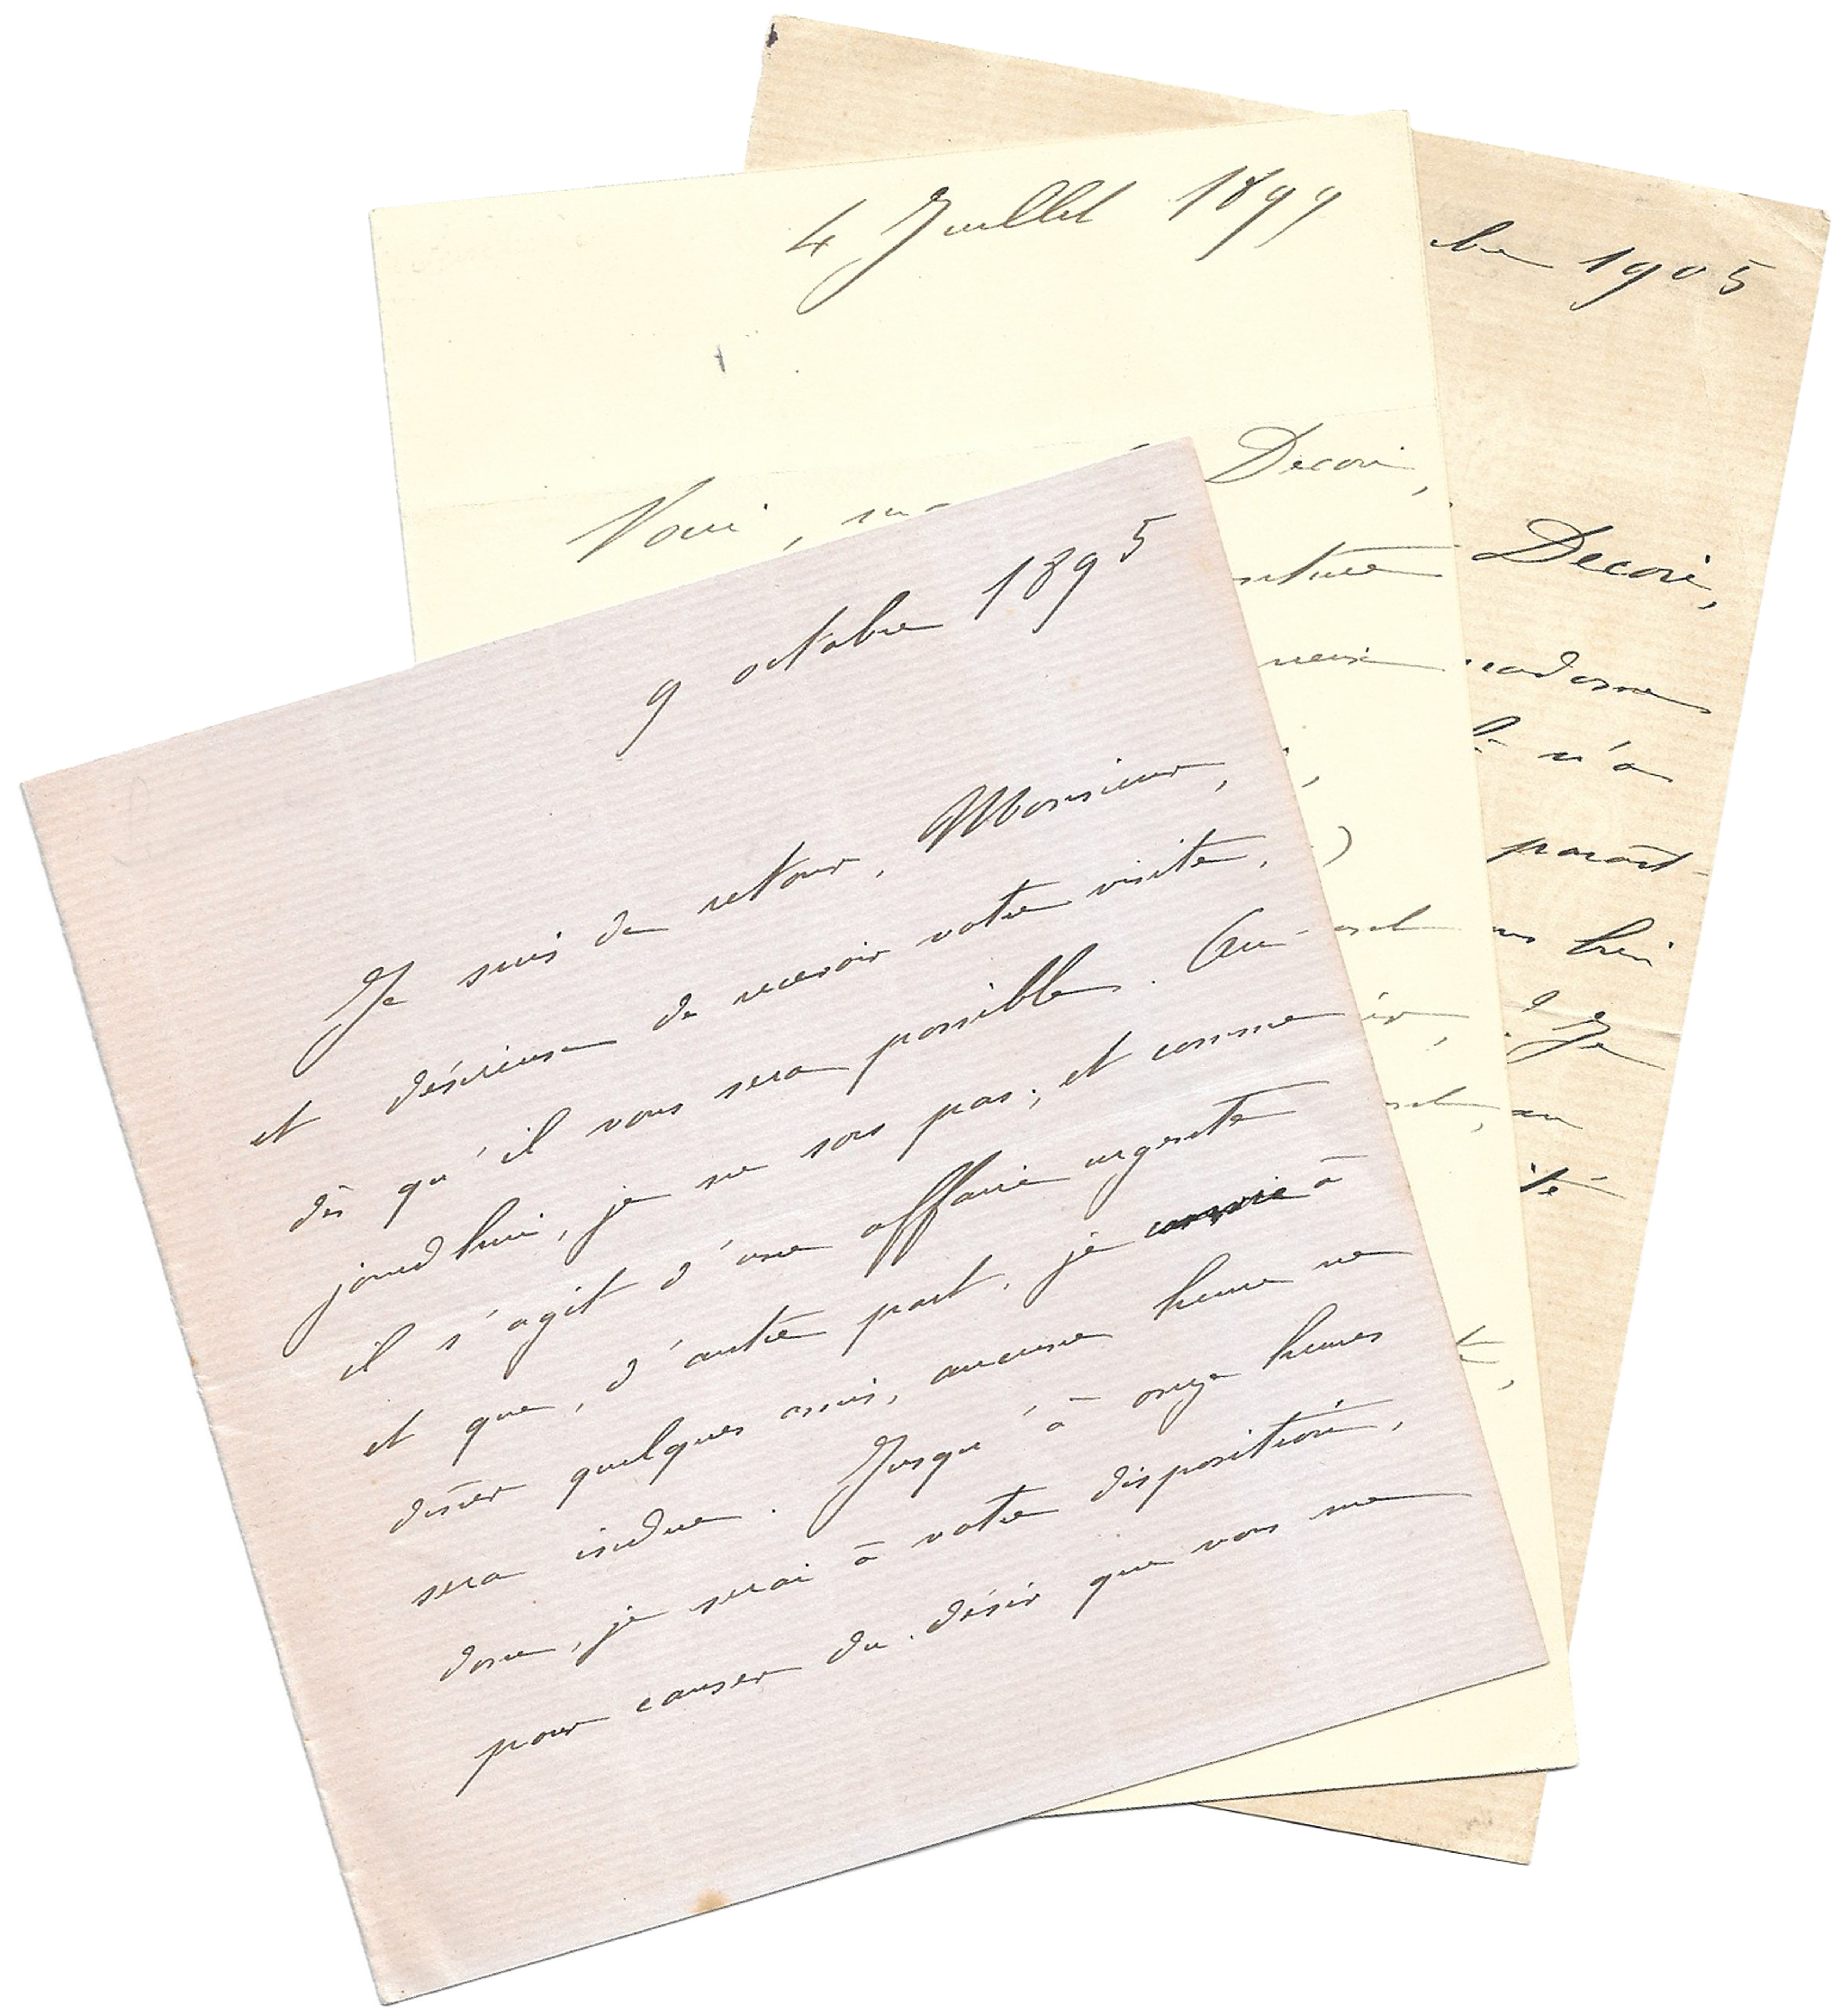 9 octobre 1895
Je suis de retour, Monsieur,
et désireuse de recevoir votre visite,
dès qu'il vous sera possible. Au-
jourd'hui, je ne sors pas; et comme
il s'agit d'une affaire urgente
et que, d'autre part, je à
dîner quelques amis, aucune heure ne
sera indue. Jusqu'à onze heures
donc, je serai à votre disposition,
pour causer du désir que vous me
4 Juillet 1899
Voici, Decori,
bre 1905
Decori,
madame
n'a
paraît-
bien
? Je